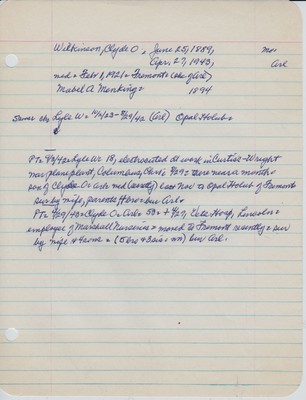 Wilkinson, Clyde O, June 25, 1889, Mo.
Apr. 27, 1943, Arl
md = Feb 1, 1921 = Fremont = (obs of Arl)
Mabel A. Menking = 1894
Lyle W = 10/4/23 - 4/29/42 (Arl) Opal Holub =
PT = 4/30/42 = Lyle W = 18, electrocuted at work in Curtiss-Wright
war plane plant, Columbus, Ohio = 4/29 = there near a month =
son of Clyde O = Arl = md (secretly) last Nov to Opal Holub of Fremont
sur by wife, parents 4 bro = bur Arl =
PT = 4/29/43 = Clyde O = Arl = 53 = 4/27, Vets Hosp, Lincoln =
employee of Marshall Nurseries = moved to Fremont recently = sur
by wife 4 sons = (5 bro 3 sis = nn) bur Arl =